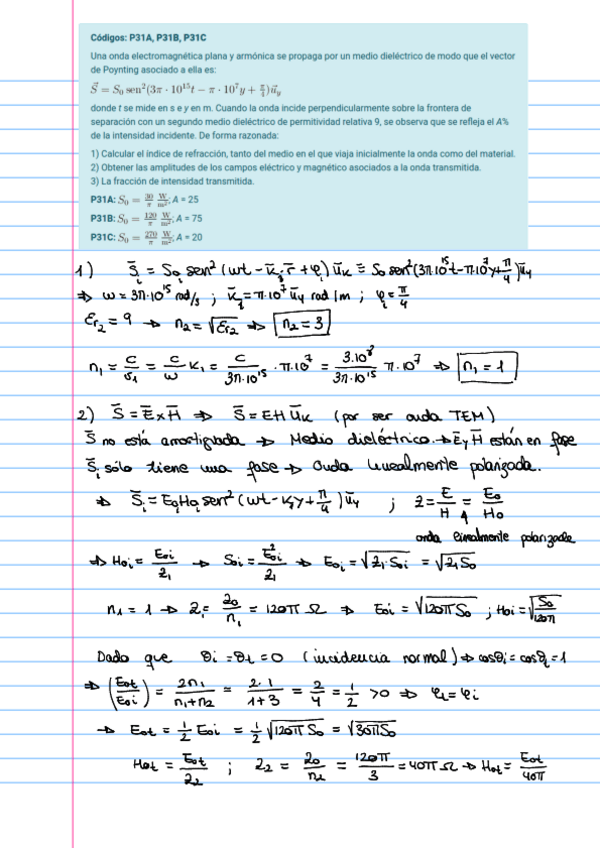 Códigos: P31A, P31B, P31C
Una onda electromagnética plana y armónica se propaga por un medio dieléctrico de modo que el vector
de Poynting asociado a ella es:
S⃗ = S₀ sen²(3π · 10¹⁵t − π · 10⁷y + π/4)u⃗y
donde t se mide en s e y en m. Cuando la onda incide perpendicularmente sobre la frontera de
separación con un segundo medio dieléctrico de permitividad relativa 9, se observa que se refleja el A%
de la intensidad incidente. De forma razonada:
1) Calcular el índice de refracción, tanto del medio en el que viaja inicialmente la onda como del material.
2) Obtener las amplitudes de los campos eléctrico y magnético asociados a la onda transmitida.
3) La fracción de intensidad transmitida.
P31A: S₀ = 30/π W/m²; A = 25
P31B: S₀ = 120/π W/m²; A = 75
P31C: S₀ = 270/π W/m²; A = 20
1) S̄i = S0i sen² (ωt - k̄i·r̄ + φi) ūk ≡ S0 sen²(3π·10¹⁵t-π·10⁷y+π/4)ūy
⇒ ω = 3π·10¹⁵ rad/s ; k̄i = π·10⁷ ūy rad/m ; φi = π/4
εr2 = 9 → n2 = √εr2 ⇒ n2 = 3
n1 = c/v1 = c/ω k1 = c/3π·10¹⁵ · π·10⁷ = 3·10⁸/3π·10¹⁵ π·10⁷ ⇒ n1 = 1
2) S̄ = Ē×H̄ ⇒ S̄ = EH ūk (por ser onda TEM)
S̄ no está amortiguada → Medio dieléctrico → Ē y H̄ están en fase
S̄i sólo tiene una fase → Onda linealmente polarizada.
⇒ S̄i = E0H0 sen² (ωt - k1y + π/4) ūy ; Z = E/H = E0/H0
onda linealmente polarizada
⇒ H0i = E0i/Z1 → S0i = E0i²/Z1 → E0i = √Z1·S0i = √Z1S0
n1 = 1 → Z1 = Z0/n1 = 120π Ω ⇒ E0i = √120πS0 ; H0i = √S0/120π
Dado que θi = θt = 0 (incidencia normal) ⇒ cosθi = cosθt = 1
⇒ (E0t/E0i) = 2n1/n1+n2 = 2·1/1+3 = 2/4 = 1/2 > 0 ⇒ φt = φi
→ E0t = 1/2 E0i = 1/2 √120π S0 = √30πS0
H0t = E0t/Z2 ; Z2 = Z0/n2 = 120π/3 = 40π Ω → H0t = E0t/40π